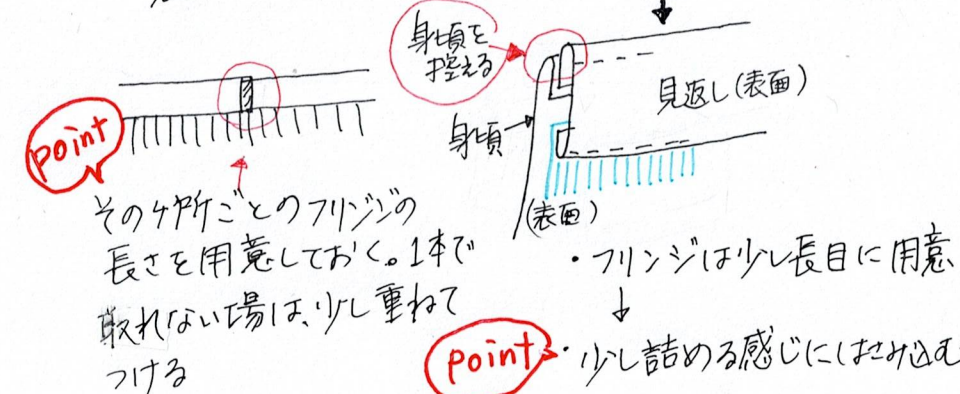 point
そのヶ所ごとのフリンジの
長さを用意しておく。1本で
取れない場は、少し重ねて
つける
身頃を
控える
見返し(表面)
身頃
(表面)
・フリンジは少し長目に用意
↓
point
・少し詰める感じにはさみ込む